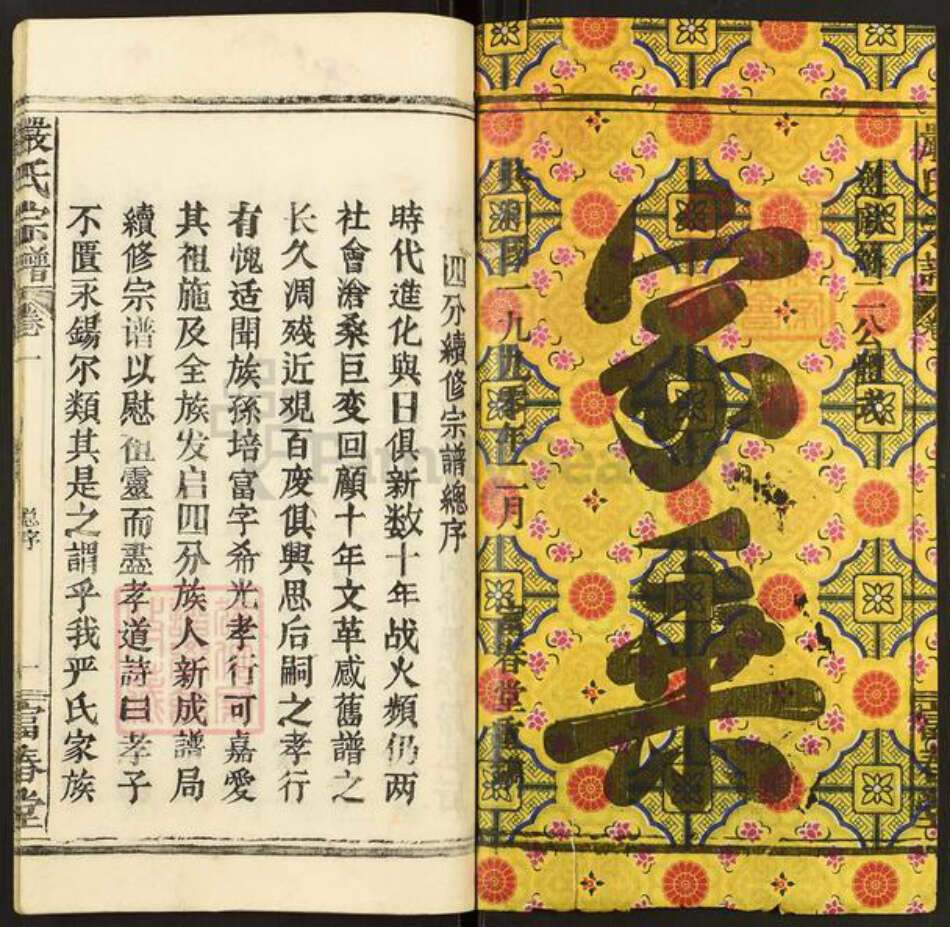 獻廷二公體式
家乘
民國一九九零年二月
富春堂
四分續修宗譜總序
時代進化與日俱新数十年战火頻仍两
社會滄桑巨変回顧十年文革感舊譜之
长久凋残近观百废俱興思后嗣之孝行
有愧适聞族孫培富字希光孝行可嘉愛
其祖施及全族发启四分族人新成譜局
續修宗谱以慰祖靈而盡孝道詩曰孝子
不匱永錫尔類其是之謂乎我严氏家族
嚴氏宗譜
卷一
總序
一
富春堂